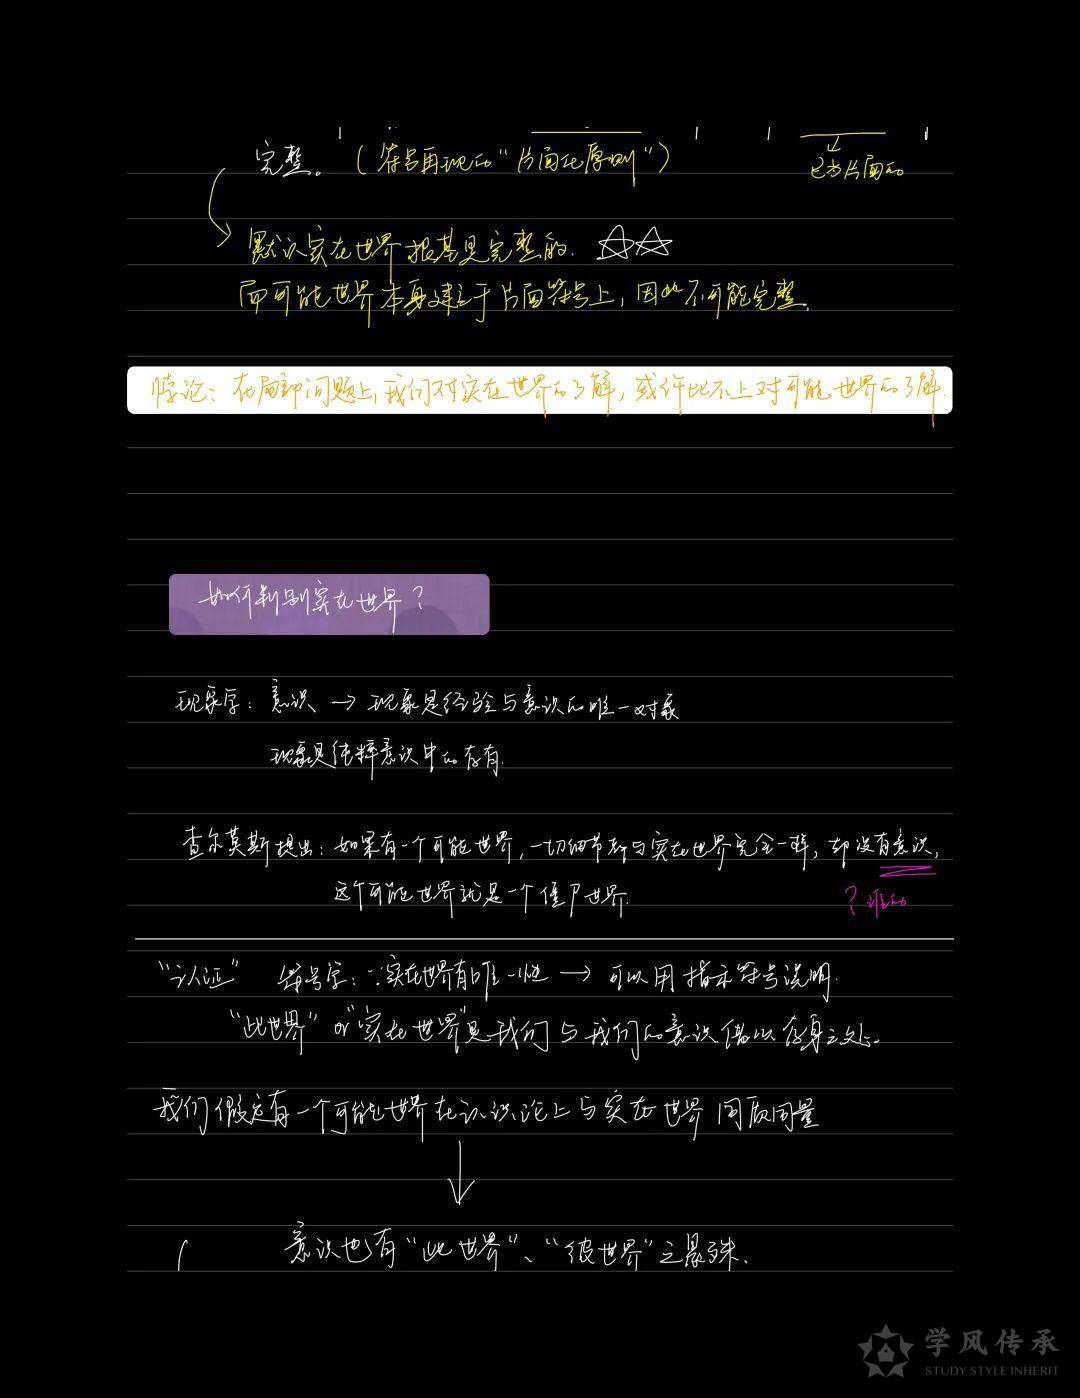 完整。（符号再现的“片面化原则”）
已为片面的
默认实在世界根基是完整的.
而可能世界本身建立于片面符号上，因此不可能完整.
悖论：在局部问题上，我们对实在世界的了解，或许比不上对可能世界的了解.
如何判别实在世界？
现象学：意识 → 现象是经验与意识的唯一对象
现象是纯粹意识中的存有.
查尔莫斯提出：如果有一个可能世界，一切细节都与实在世界完全一样，却没有意识，
这个可能世界就是一个僵尸世界.
？谁的
“认证” 符号学：∵实在世界有唯一性 → 可以用指示符号说明.
“此世界” or “实在世界”是我们与我们的意识借以存身之处.
我们假定有一个可能世界在认识论上与实在世界同质同量
意识也有“此世界”、“彼世界”之悬殊.
学风传承
STUDY STYLE INHERIT